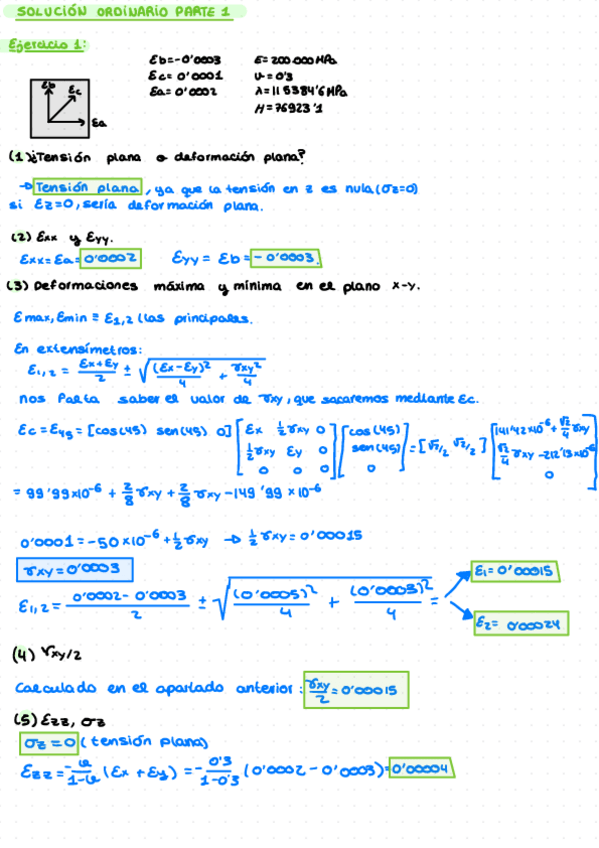 SOLUCIÓN ORDINARIO PARTE 1
Ejercicio 1:
εb=-0'0003
εc=0'0001
εa=0'0002
E=200.000 MPa
ν=0'3
λ=115384'6 MPa
H=76923'1
εb
εc
εa
(1) ¿Tensión plana o deformación plana?
→ Tensión plana, ya que la tensión en z es nula (σz=0)
si εz=0, sería deformación plana.
(2) εxx y εyy.
εxx=εa=0'0002 εyy=εb=-0'0003.
(3) Deformaciones máxima y mínima en el plano x-y.
εmax, εmin ≡ ε1,2 (las principales.
En extensímetros:
ε1,2 = (εx+εy)/2 ± √((εx-εy)²/4 + γxy²/4)
nos falta saber el valor de γxy, que sacaremos mediante εc.
εc=ε45=[cos(45) sen(45) 0] [εx ½γxy 0; ½γxy εy 0; 0 0 0] [cos(45); sen(45); 0] = [√2/2 √2/2] [141'42×10⁻⁶+√2/4 γxy; √2/4 γxy-212'13×10⁻⁶; 0]
= 99'99×10⁻⁶ + 2/8 γxy + 2/8 γxy - 149'99×10⁻⁶
0'0001=-50×10⁻⁶+½γxy → ½γxy=0'00015
γxy=0'0003
ε1,2 = (0'0002-0'0003)/2 ± √((0'0005)²/4 + (0'0003)²/4) =
ε1=0'00015
ε2= 0'00024
(4) γxy/2
Calculado en el apartado anterior: γxy/2=0'00015
(5) εzz, σz
σz=0 (tensión plana)
εzz=-ν/(1-ν) (εx+εy) = -0'3/(1-0'3) (0'0002-0'0003)=0'00004